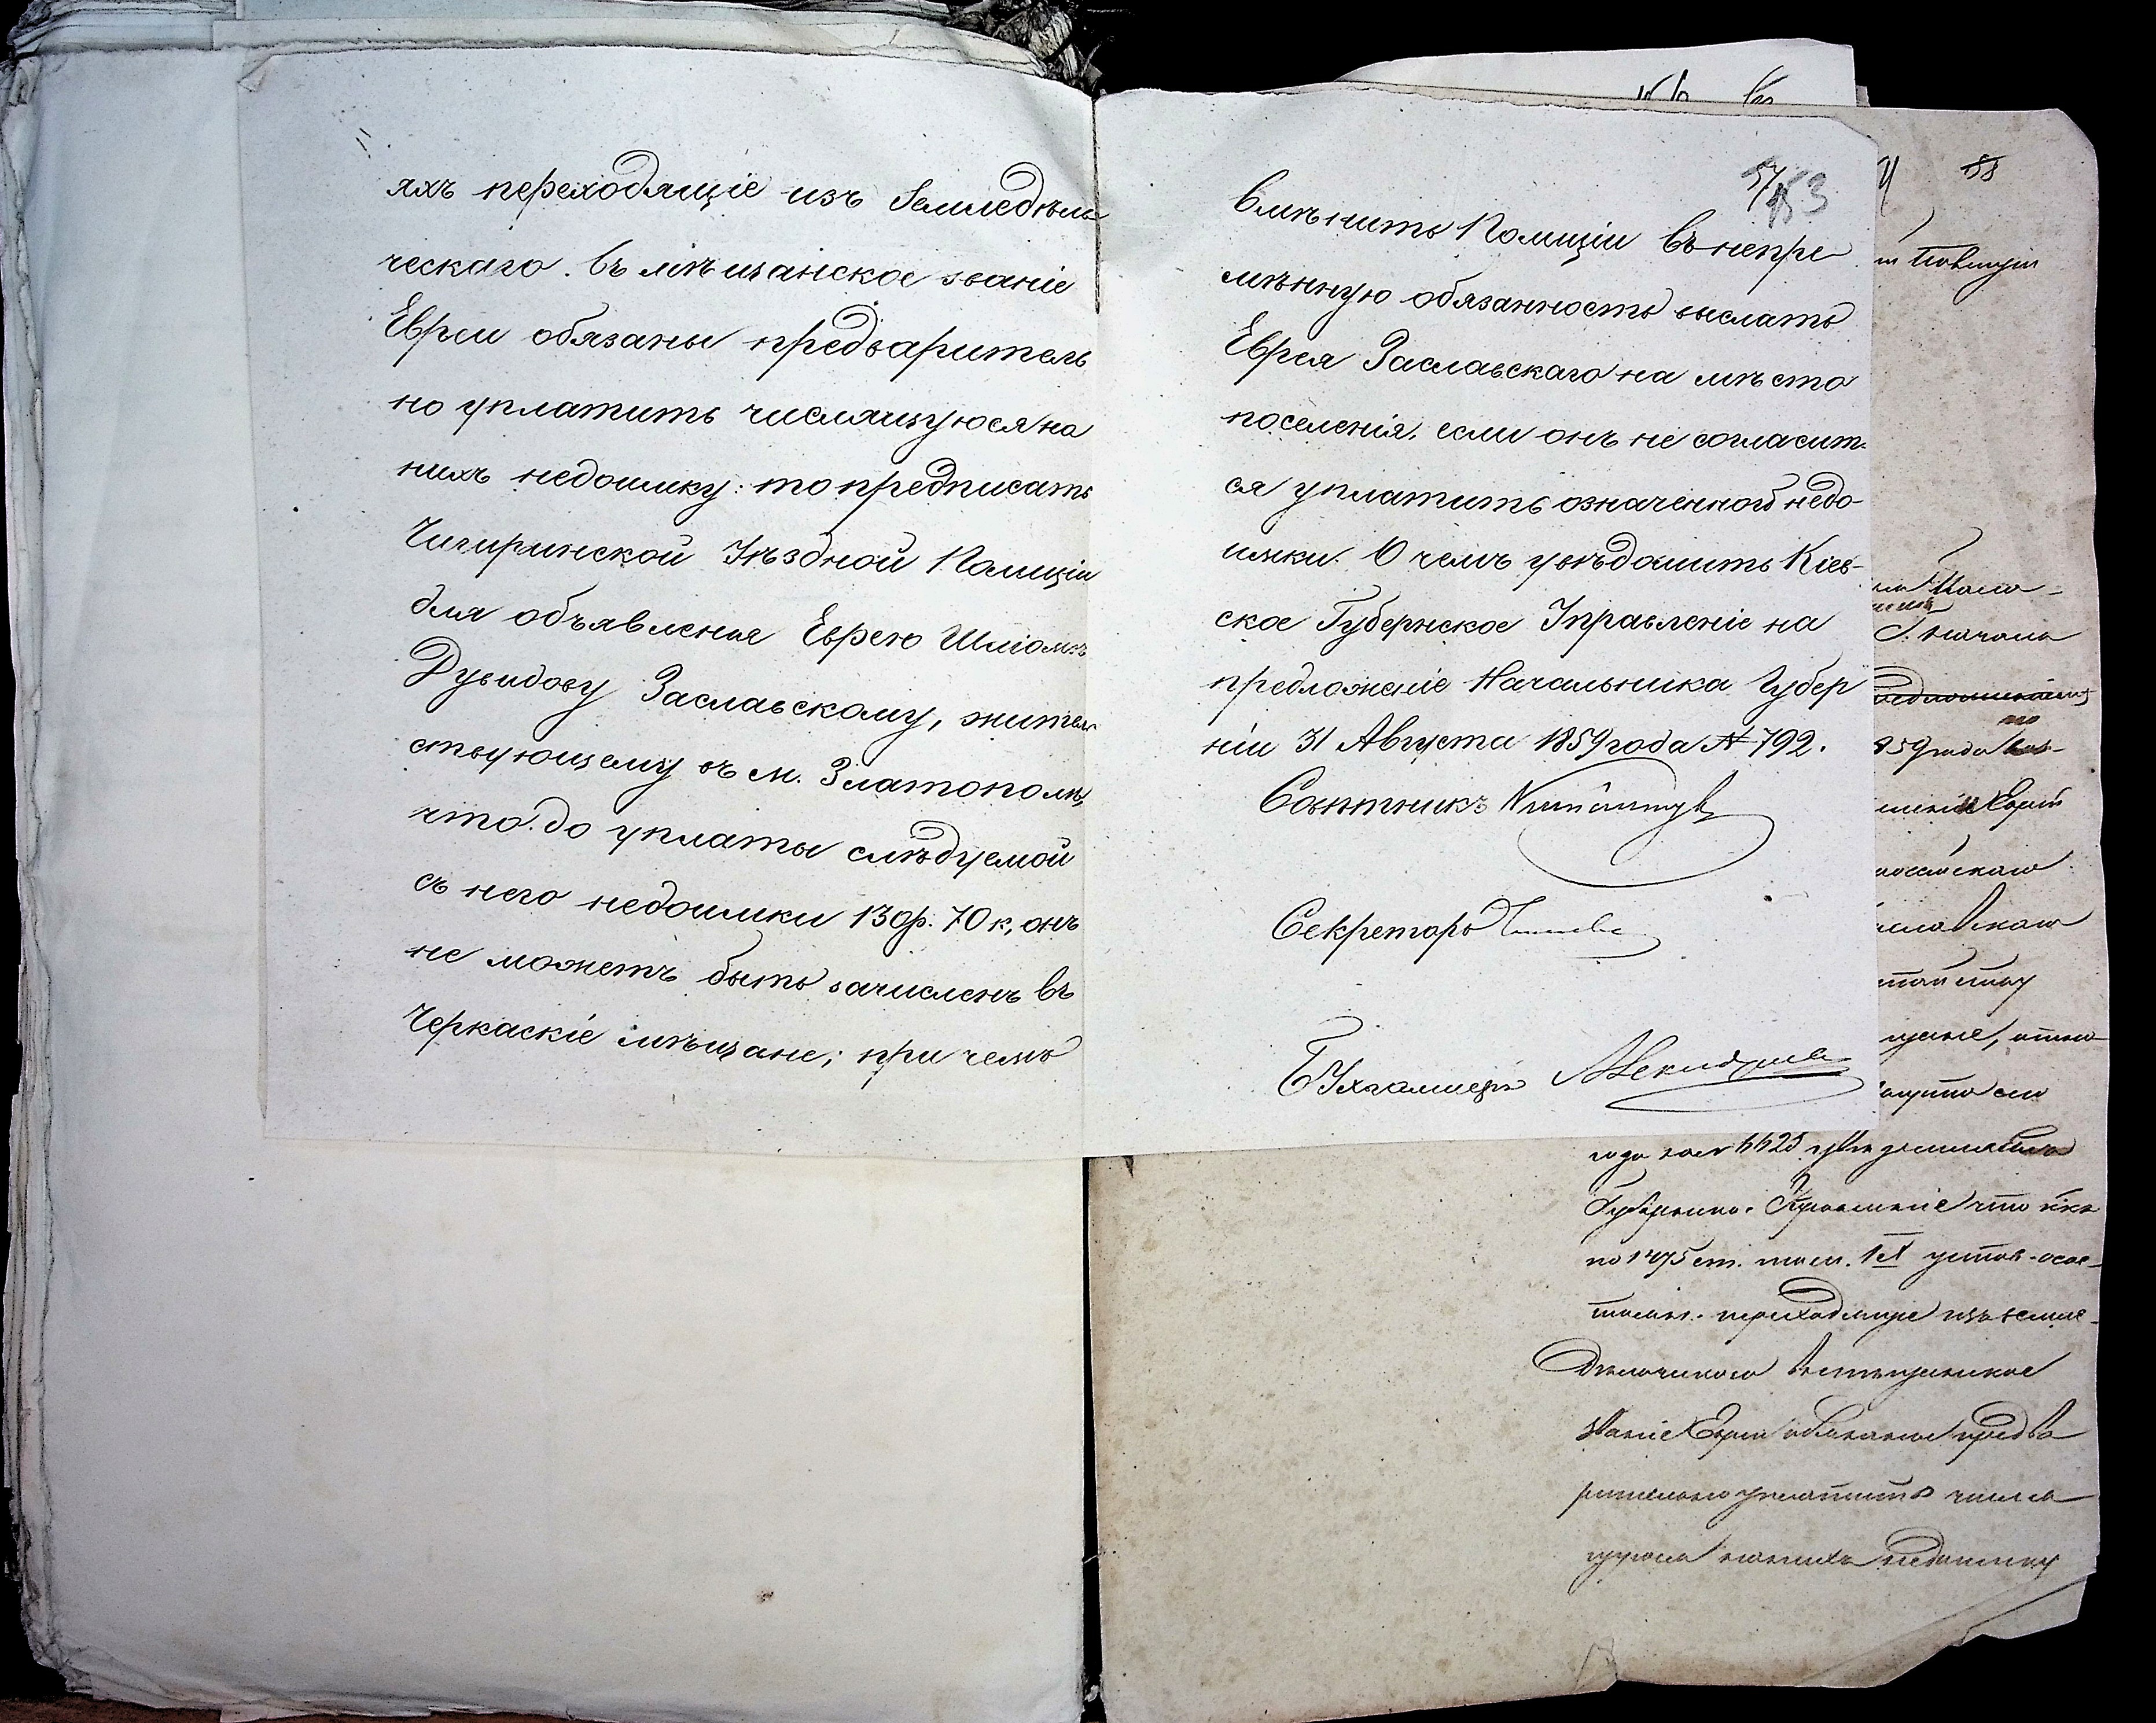 яхъ переходящіе изъ Земледѣль
ческаго въ мѣщанское званіе
Евреи обязаны предваритель
но уплатить числящуюся на
нихъ недоимку: то предписать
Чигиринской Уѣздной Полиціи
для объявленія Еврею Шліомѣ
Дувидову Заславскому, житель
ствующему въ м. Златополѣ,
что до уплаты слѣдуемой
съ него недоимки 13 р. 70 к., онъ
не можетъ быть зачисленъ въ
Черкаскіе мѣщане; при чемъ
57
53
вмѣнить Полиціи въ непре
мѣнную обязанность выслать
Еврея Заславскаго на мѣсто
поселенія, если онъ не согласит
ся уплатить означенной недо-
имки. О чемъ увѣдомить Кіев-
ское Губернское Управленіе на
предложеніе Начальника Губер
ніи 31 Августа 1859 года № 792.
Совѣтникъ
Секретарь
Бухгалтеръ
58
59 года
Еврей
щане,
года за № 4425
Губернское Правленіе что какъ
по 1475 ст. том. IX устав. о сос-
тоян. переходящіе изъ земле-
дѣльческаго въ мѣщанское
званіе Евреи обязаны предва
рительно уплатить числя
щуюся на нихъ недоимку